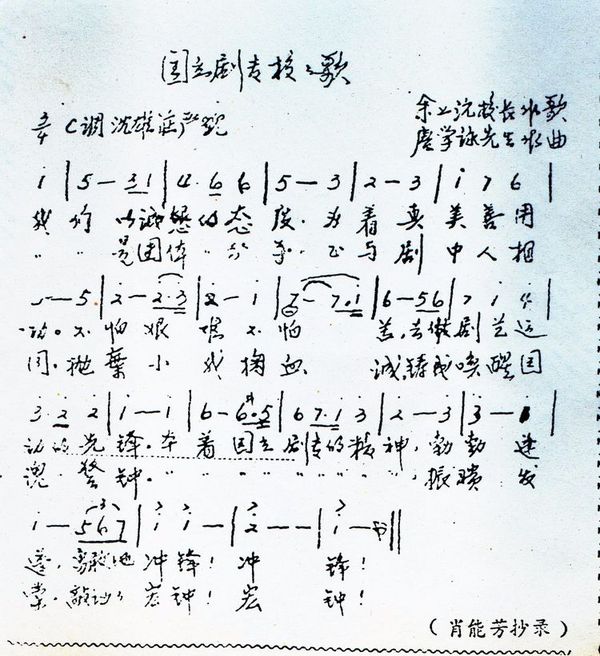 国立剧专校之歌
3/4 C调 沈雄庄严地
余上沅校长作歌
作曲
1 | 5 — 3 1 | 4 · 6 6 | 5 — 3 | 2 — 3 | i 7 6 |
我们 以诚恳的态度 为着真美善用
〃 〃 是团体 〃 〃 与剧中人相
— 5 | 2 — 2·3 | 2 — 1 | 7 — 7·1 | 6 — 5 6 | 7 1
功。不怕艰难不怕苦,去做剧艺运
同。抛弃小我掬血诚,铸成唤醒国
3·2 2 | i — i | 6 — 6·5 | 6 7·1 3 | 2 — 3 | 3 — 1 |
动的先锋。本着国立剧专的精神,勃勃蓬
魂警钟。〃 〃 〃 〃 〃 〃 〃 〃 振聩发
i — 5 6 7 | i i — | 2 — — | i — 0 ‖
蓬,冲锋!冲锋!
宏钟!宏钟!
(肖能芳抄录)